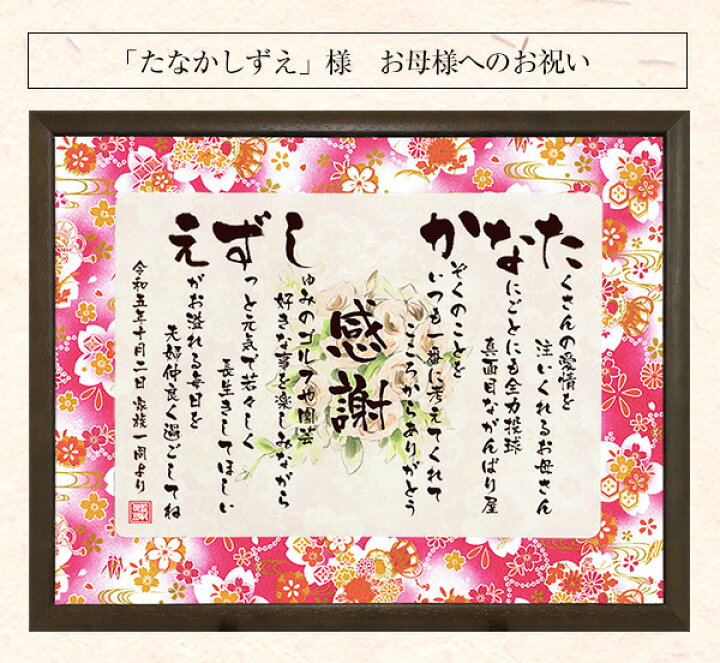 「たなかしずえ」様　お母様へのお祝い
たくさんの愛情を
注いくれるお母さん
なにごとにも全力投球
真面目ながんばり屋
かぞくのことを
いつも一番に考えてくれて
こころからありがとう
感謝
しゅみのゴルフや園芸
好きな事を楽しみながら
ずっと元気で若々しく
長生きしてほしい
えがお溢れる毎日を
夫婦仲良く過ごしてね
令和五年十月二日 家族一同より